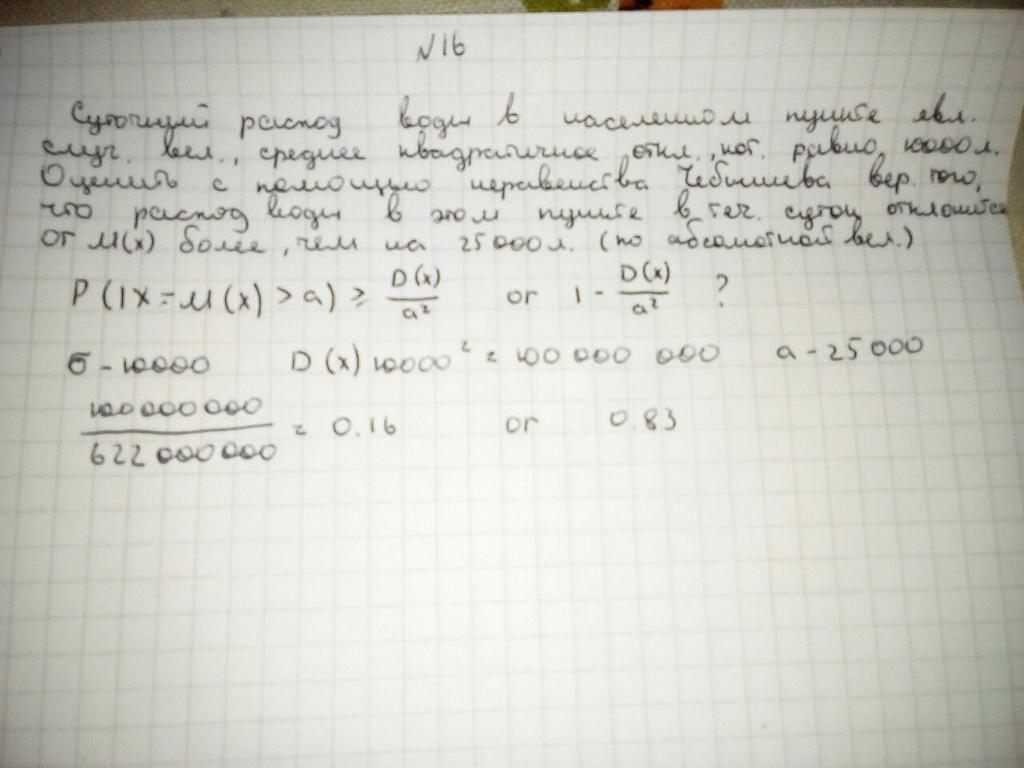 N16
Суточный расход воды в населенном пункте явл.
случ. вел., среднее квадратичное откл., кот. равно 10000 л.
Оценить с помощью неравенства Чебышева вер. того,
что расход воды в этом пункте в теч. суток отклонится
от M(x) более, чем на 25000 л. (по абсолютной вел.)
P(|X - M(x) > a) ≥ D(x)/a² or 1 - D(x)/a² ?
σ - 10000 D(x) 10000² = 100 000 000 a - 25 000
100 000 000/622 000 000 = 0.16 or 0.83